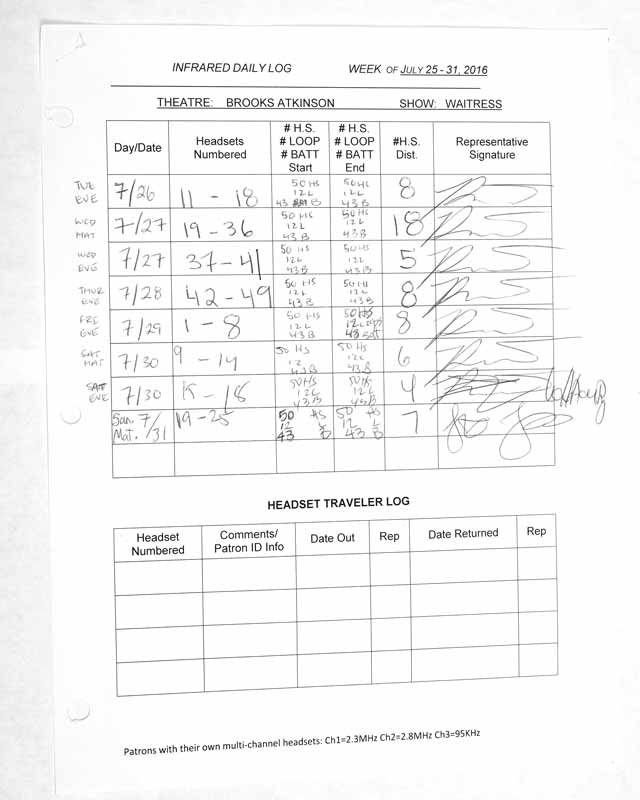 INFRARED DAILY LOG WEEK OF JULY 25 - 31, 2016
THEATRE: BROOKS ATKINSON SHOW: WAITRESS
Day/Date Headsets Numbered # H.S. # LOOP # BATT Start # H.S. # LOOP # BATT End #H.S. Dist. Representative Signature
TUE EVE 7/26 11 - 18 50 HS 12 L 43 B 50 HS 12 L 43 B 8
WED MAT 7/27 19 - 36 50 HS 12 L 43 B 50 HS 12 L 43 B 18
WED EVG 7/27 37 - 41 50 HS 12 L 43 B 50 HS 12 L 43 B 5
THUR EVE 7/28 42 - 49 50 HS 12 L 43 B 50 HS 12 L 43 B 8
FRI EVE 7/29 1 - 8 50 HS 12 L 43 B 50 HS 12 43 8
SAT MAT 7/30 9 - 14 50 HS 12 43 B 50 HS 12 L 43 B 6
SAT EVE 7/30 - 18 50 HS 12 L 43 B 50 HS 12 L 43 B 4
Sun. Mat. 7/31 19 - 25 50 HS 12 L 43 B 50 HS 12 L 43 B 7
HEADSET TRAVELER LOG
Headset Numbered Comments/ Patron ID Info Date Out Rep Date Returned Rep
Patrons with their own multi-channel headsets: Ch1=2.3MHz Ch2=2.8MHz Ch3=95KHz